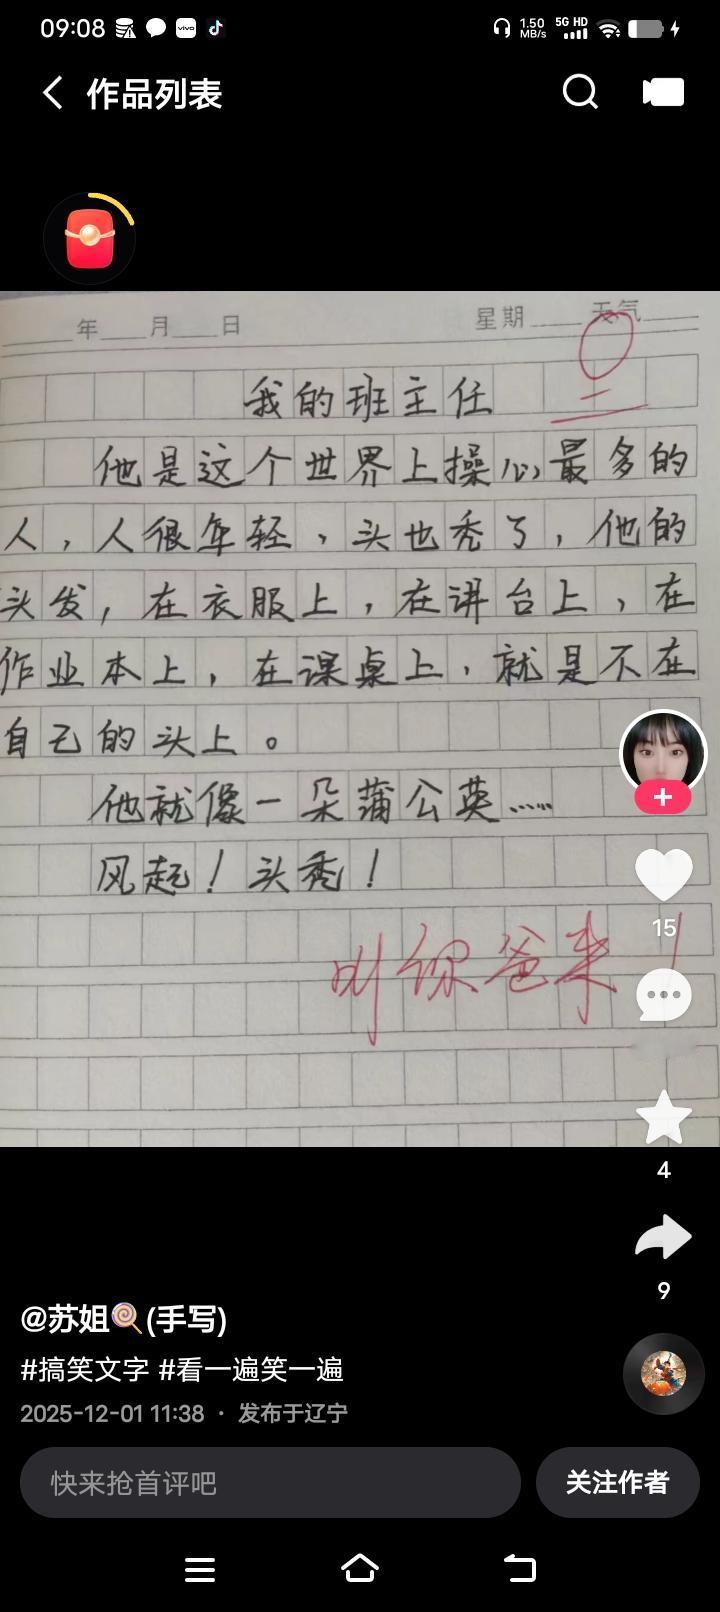 09:08
vivo
1.50 MB/s
5G HD
作品列表
年 月 日 星期 天气
我的班主任
他是这个世界上操心最多的
人，人很年轻，头也秃了，他的
头发，在衣服上，在讲台上，在
作业本上，在课桌上，就是不在
自己的头上。
他就像一朵蒲公英……
风起！头秃！
叫你爸来！
15
4
9
@苏姐🍭(手写)
#搞笑文字 #看一遍笑一遍
2025-12-01 11:38 · 发布于辽宁
快来抢首评吧
关注作者